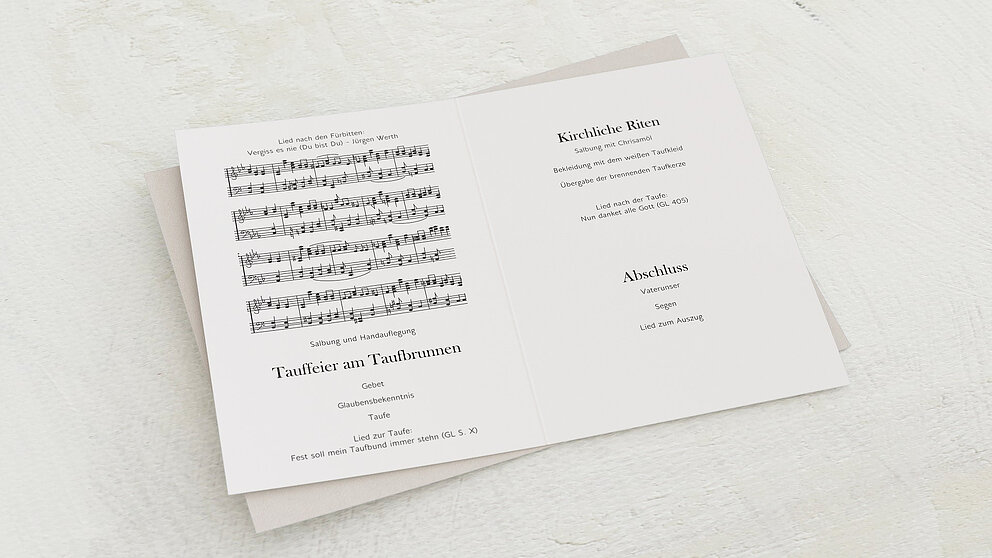 Lied nach den Fürbitten:
Vergiss es nie (Du bist Du) - Jürgen Werth
Salbung und Handauflegung
Tauffeier am Taufbrunnen
Gebet
Glaubensbekenntnis
Taufe
Lied zur Taufe:
Fest soll mein Taufbund immer stehn (GL S. X)
Kirchliche Riten
Salbung mit Chrisamöl
Bekleidung mit dem weißen Taufkleid
Übergabe der brennenden Taufkerze
Lied nach der Taufe:
Nun danket alle Gott (GL 405)
Abschluss
Vaterunser
Segen
Lied zum Auszug